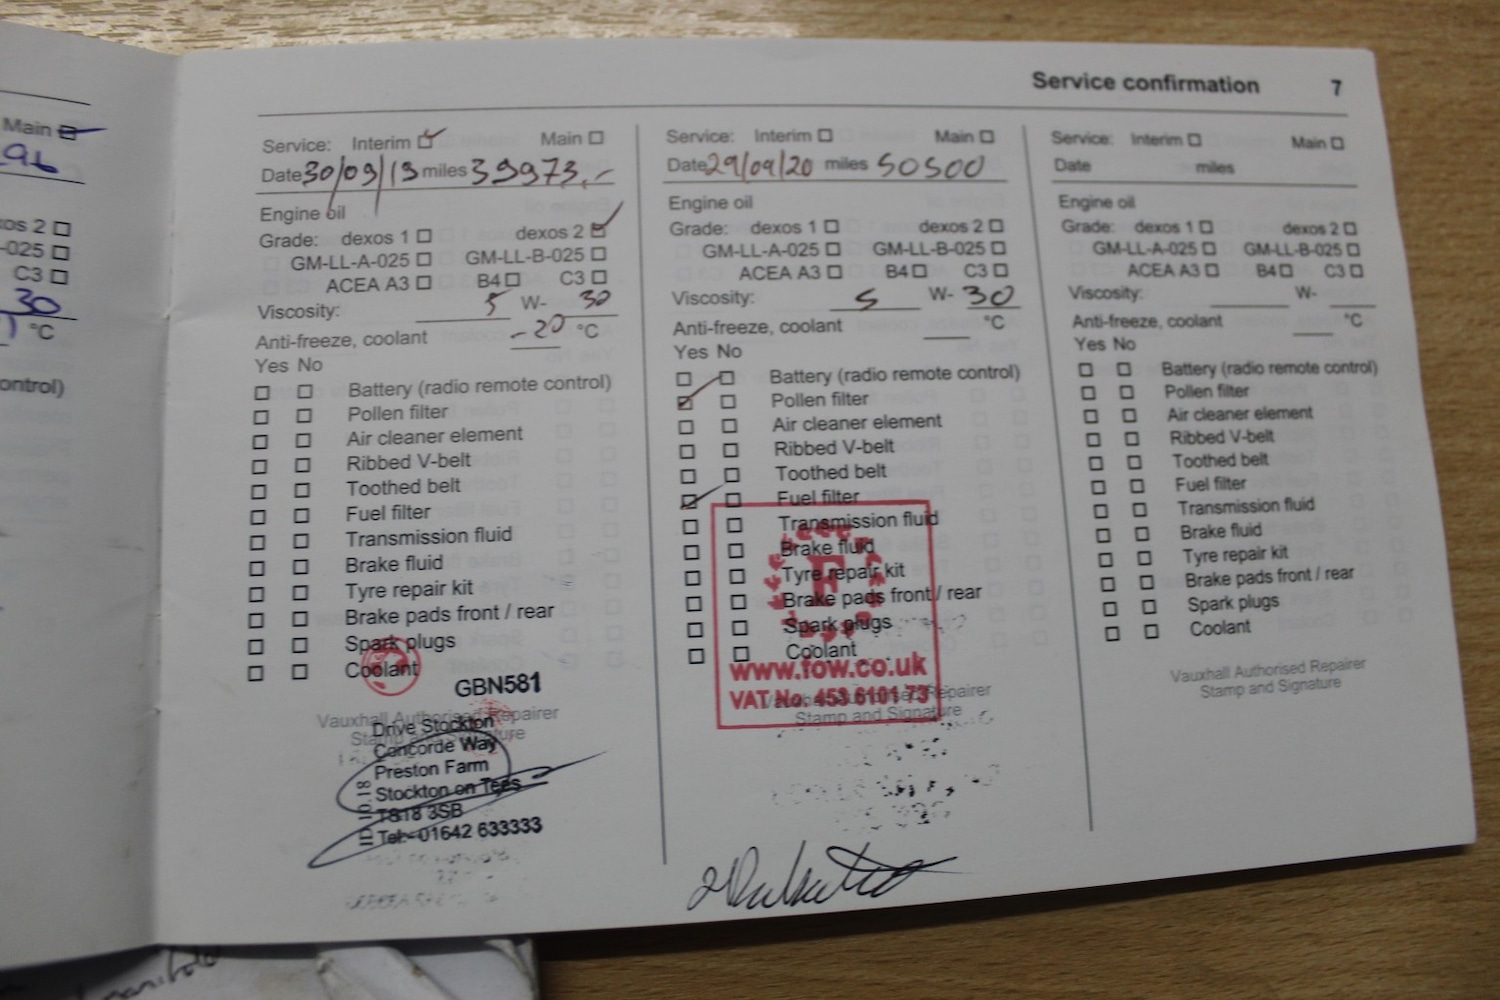 Service confirmation 7
Main
96
xos 2
-025
C3
30
°C
ontrol)
Service: Interim Main
Date 30/09/19 miles 39973,-
Engine oil
Grade: dexos 1 dexos 2
GM-LL-A-025 GM-LL-B-025
ACEA A3 B4 C3
Viscosity: 5 W- 30
Anti-freeze, coolant -20 °C
Yes No
Battery (radio remote control)
Pollen filter
Air cleaner element
Ribbed V-belt
Toothed belt
Fuel filter
Transmission fluid
Brake fluid
Tyre repair kit
Brake pads front / rear
Spark plugs
Coolant
GBN581
Vauxhall Authorised Repairer
Stamp and Signature
Drive Stockton
Concorde Way
Preston Farm
Stockton on Tees
TS18 3SB
Tel:- 01642 633333
ID 10.18
Service: Interim Main
Date 29/09/20 miles 50500
Engine oil
Grade: dexos 1 dexos 2
GM-LL-A-025 GM-LL-B-025
ACEA A3 B4 C3
Viscosity: 5 W- 30
Anti-freeze, coolant °C
Yes No
Battery (radio remote control)
Pollen filter
Air cleaner element
Ribbed V-belt
Toothed belt
Fuel filter
Transmission fluid
Brake fluid
Tyre repair kit
Brake pads front / rear
Spark plugs
Coolant
F
www.fow.co.uk
VAT No. 453 6101 73
Vauxhall Authorised Repairer
Stamp and Signature
Service: Interim Main
Date miles
Engine oil
Grade: dexos 1 dexos 2
GM-LL-A-025 GM-LL-B-025
ACEA A3 B4 C3
Viscosity: W-
Anti-freeze, coolant °C
Yes No
Battery (radio remote control)
Pollen filter
Air cleaner element
Ribbed V-belt
Toothed belt
Fuel filter
Transmission fluid
Brake fluid
Tyre repair kit
Brake pads front / rear
Spark plugs
Coolant
Vauxhall Authorised Repairer
Stamp and Signature